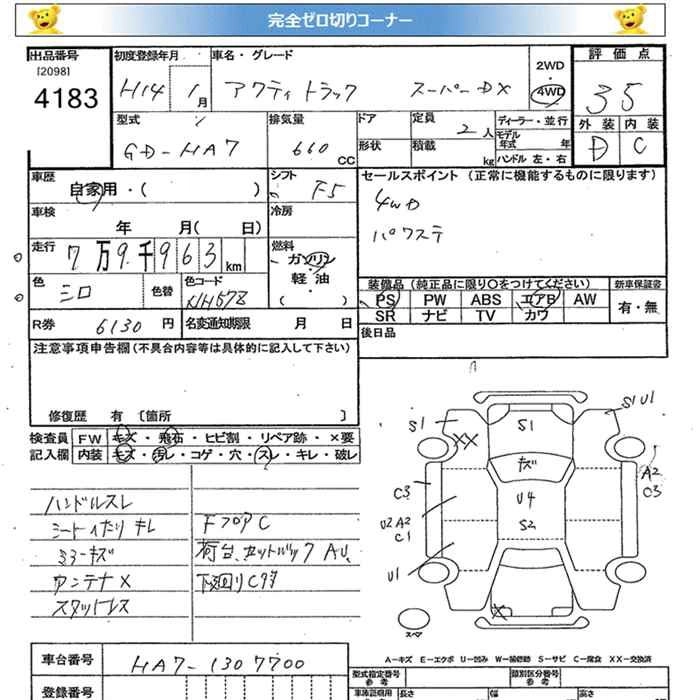 完全ゼロ切りコーナー
出品番号
[2098]
4183
初度登録年月
H14 1月
車名・グレード
アクティ トラック スーパーDX
2WD
・
4WD
評価点
35
外装 内装
D C
型式
GD-HA7
排気量
660 CC
ドア
形状
定員
2人
積載
kg
ディーラー・並行
モデル
年式 年
ハンドル 左・右
車歴
自家用・( )
シフト
F5
セールスポイント (正常に機能するものに限ります)
4WD
パワステ
車検
年 月( 日)
冷房
走行
7万9千963km
燃料
ガソリン
軽・油
( )
色
シロ
色替
色コード
NH578
装備品 (純正品に限り〇をつけてください)
新車保証書
PS PW ABS エアB AW
SR ナビ TV カワ
有・無
R券 6130円
名変通知期限 月 日
後日品
注意事項申告欄(不具合内容等は具体的に記入して下さい)
修復歴 有 〔箇所 〕
検査員
記入欄
FW キズ・飛石・ヒビ割・リペア跡・×要
内装 キズ・汚レ・コゲ・穴・スレ・キレ・破レ
ハンドルスレ
シートイたり キレ
ミラーキズ
アンテナ×
スタットレス
FフロアC
荷台、カットバック AU、
下廻りCサ
S1
XX
S1
S1 U1
キズ
A2
C3
C3
U4
S2
U2 A2
C1
U1
X
スペア
A-キズ E-エクボ U-凹み W-補修跡 S-サビ C-腐食 XX-交換済
車台番号
HA7-1307700
登録番号
型式指定番号
参考
類別区分番号
参考
車検証期用
参考
長さ
幅
高さ